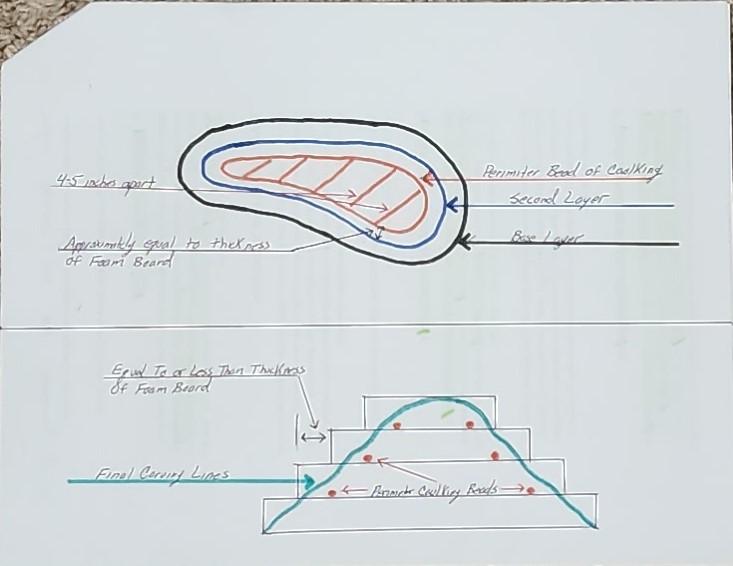 4-5 inches apart
Perimiter Bead of Caulking
Second Layer
Base Layer
Approximitly equal to thickness
of Foam Board
Equal To or Less Than Thickness
Of Foam Board
Final Carving Lines
Perimiter Caulking Beads